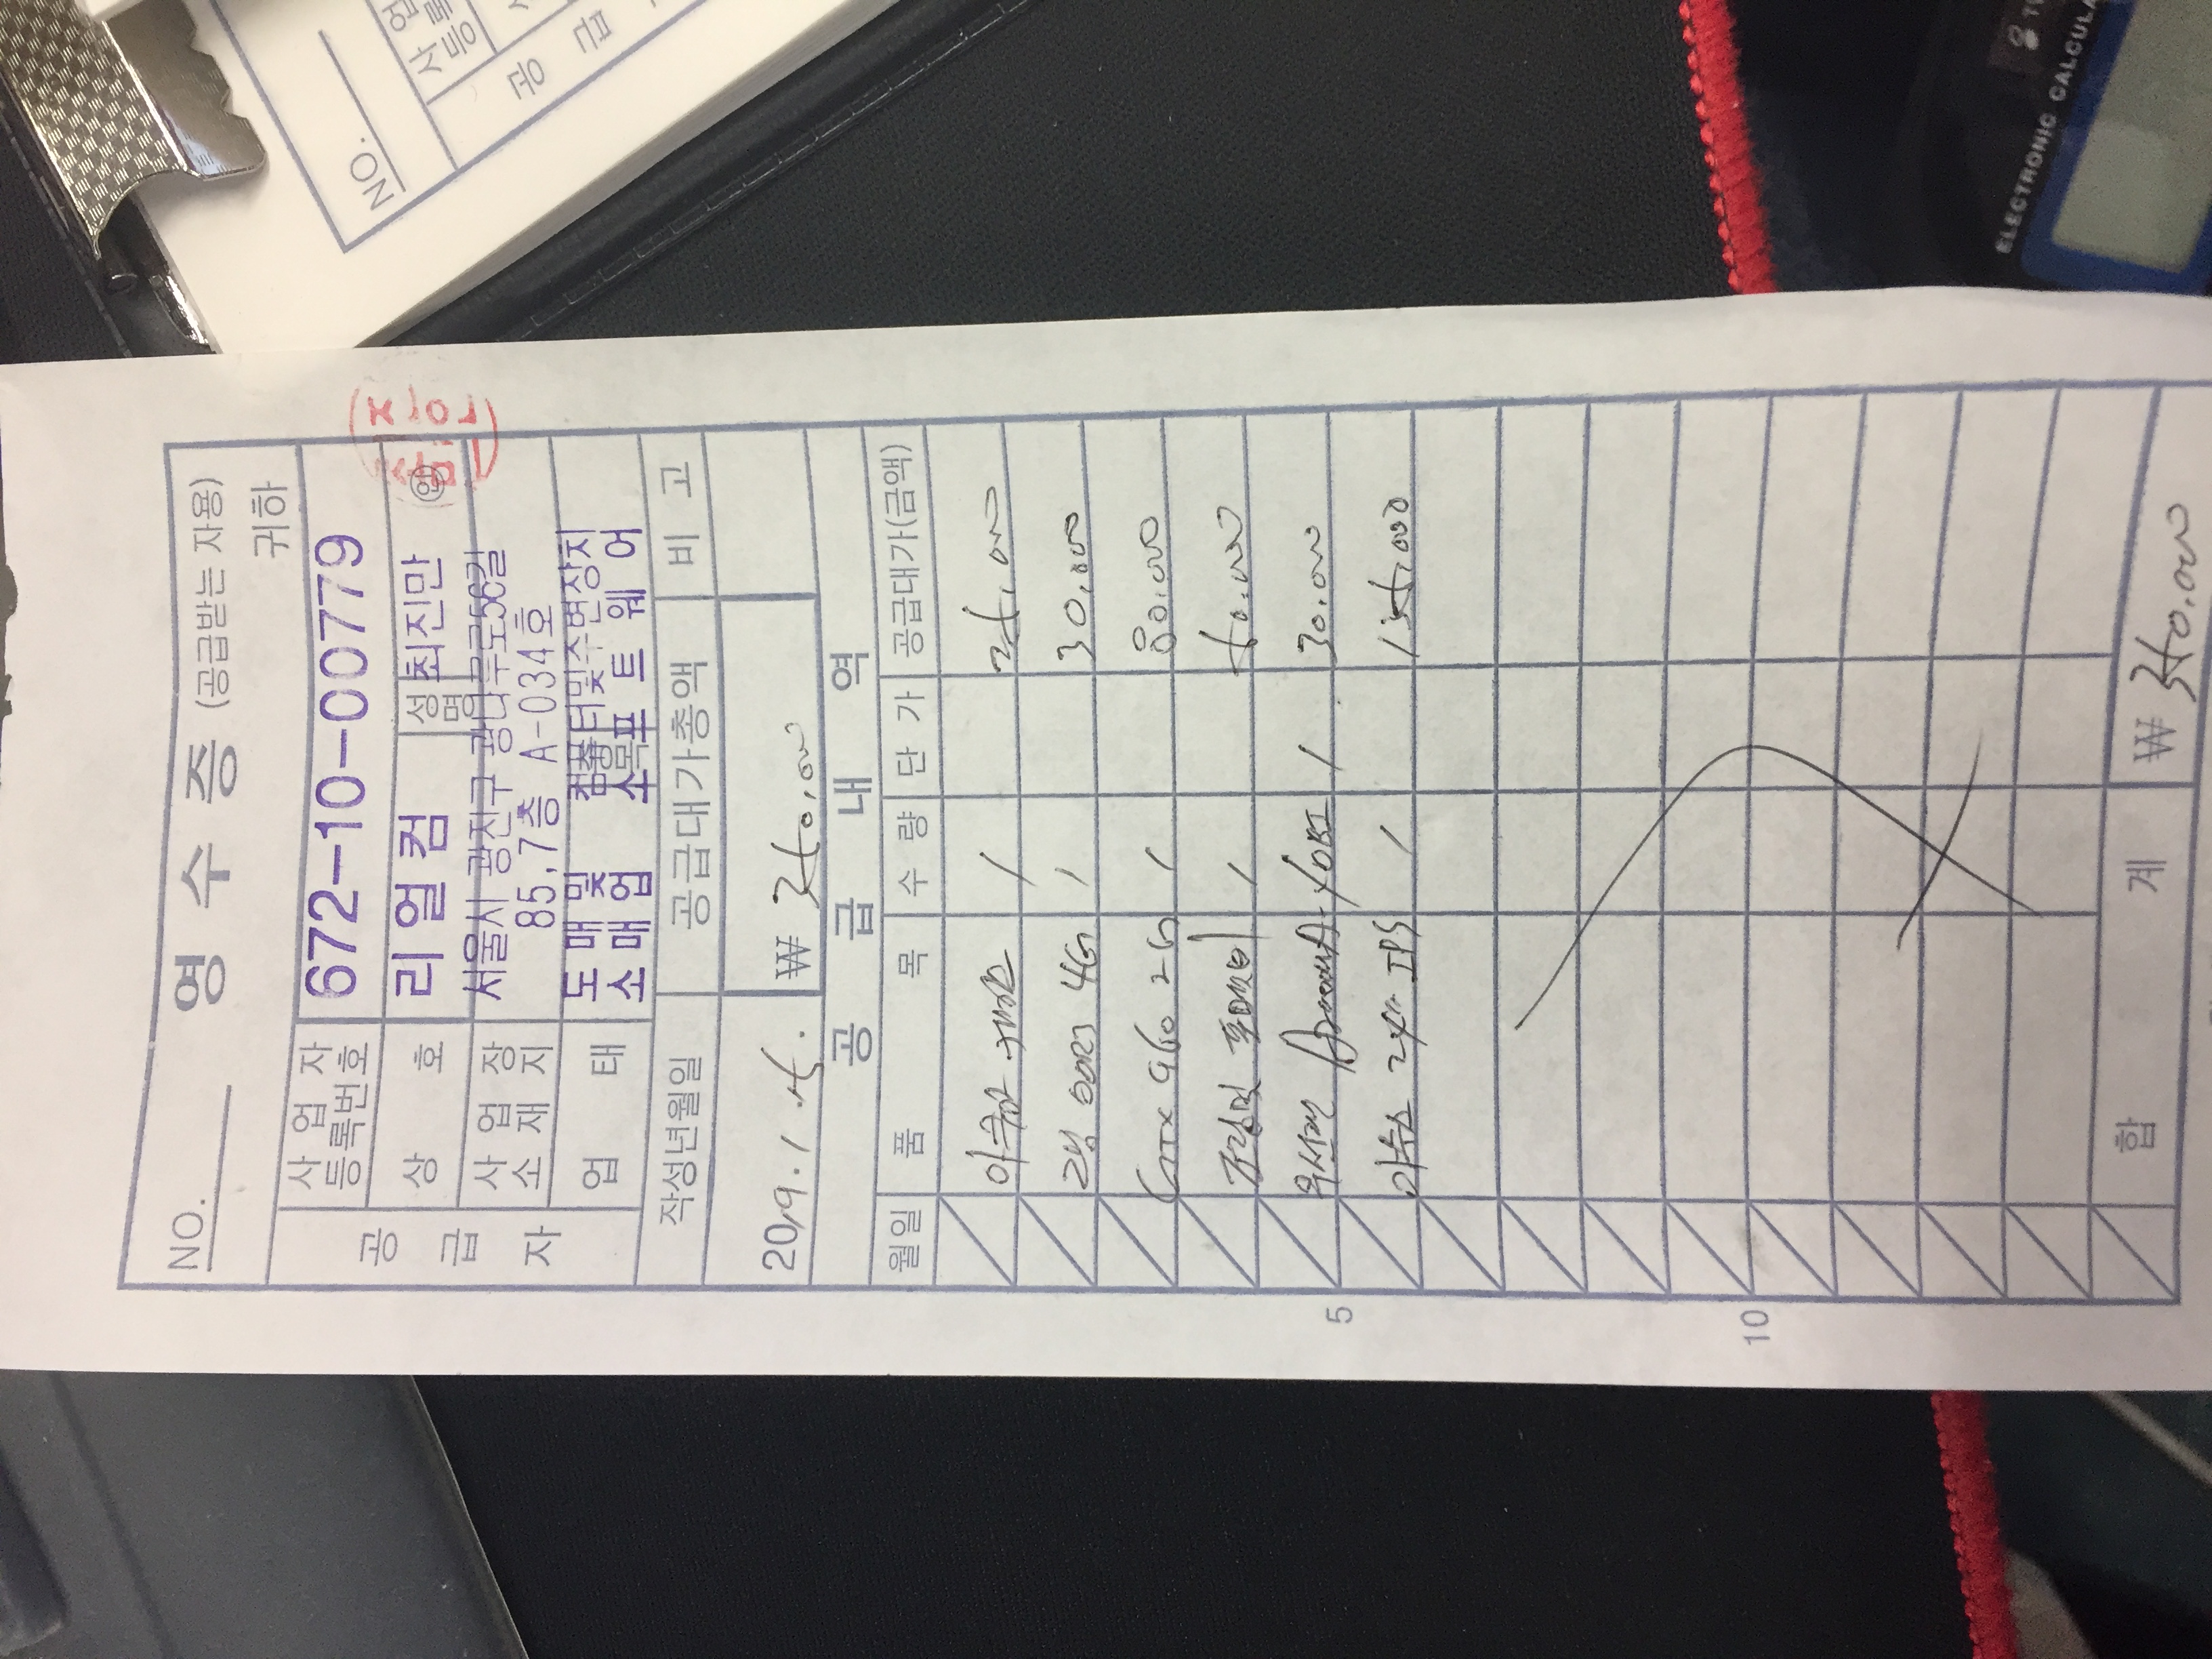 NO.
영 수 증 (공급받는 자용)
귀하
공 급 자
사 업 자 등록번호 672-10-00779
상 호 리얼컴 성명 최진만 ㊞
사 업 장 소 재 지 서울시 광진구 광나루로56길
85,7층 A-034호
업 태 도매 및 소매업 종목 컴퓨터및주변장치
소 프 트 웨 어
작성년월일 공급대가총액 비 고
2019. 1. 5. ₩ 350.000
공 급 내 역
월일 품 목 수 량 단 가 공급대가(금액)
1 25.000
DDR3 4G 1 30.000
GTX 960 2G 1 80.000
조립및 1 50.000
무선랜 1 30.000
24" IPS 1 135.000
5
10
합 계 ₩ 350.000
NO.
ELECTRONIC CALCULA